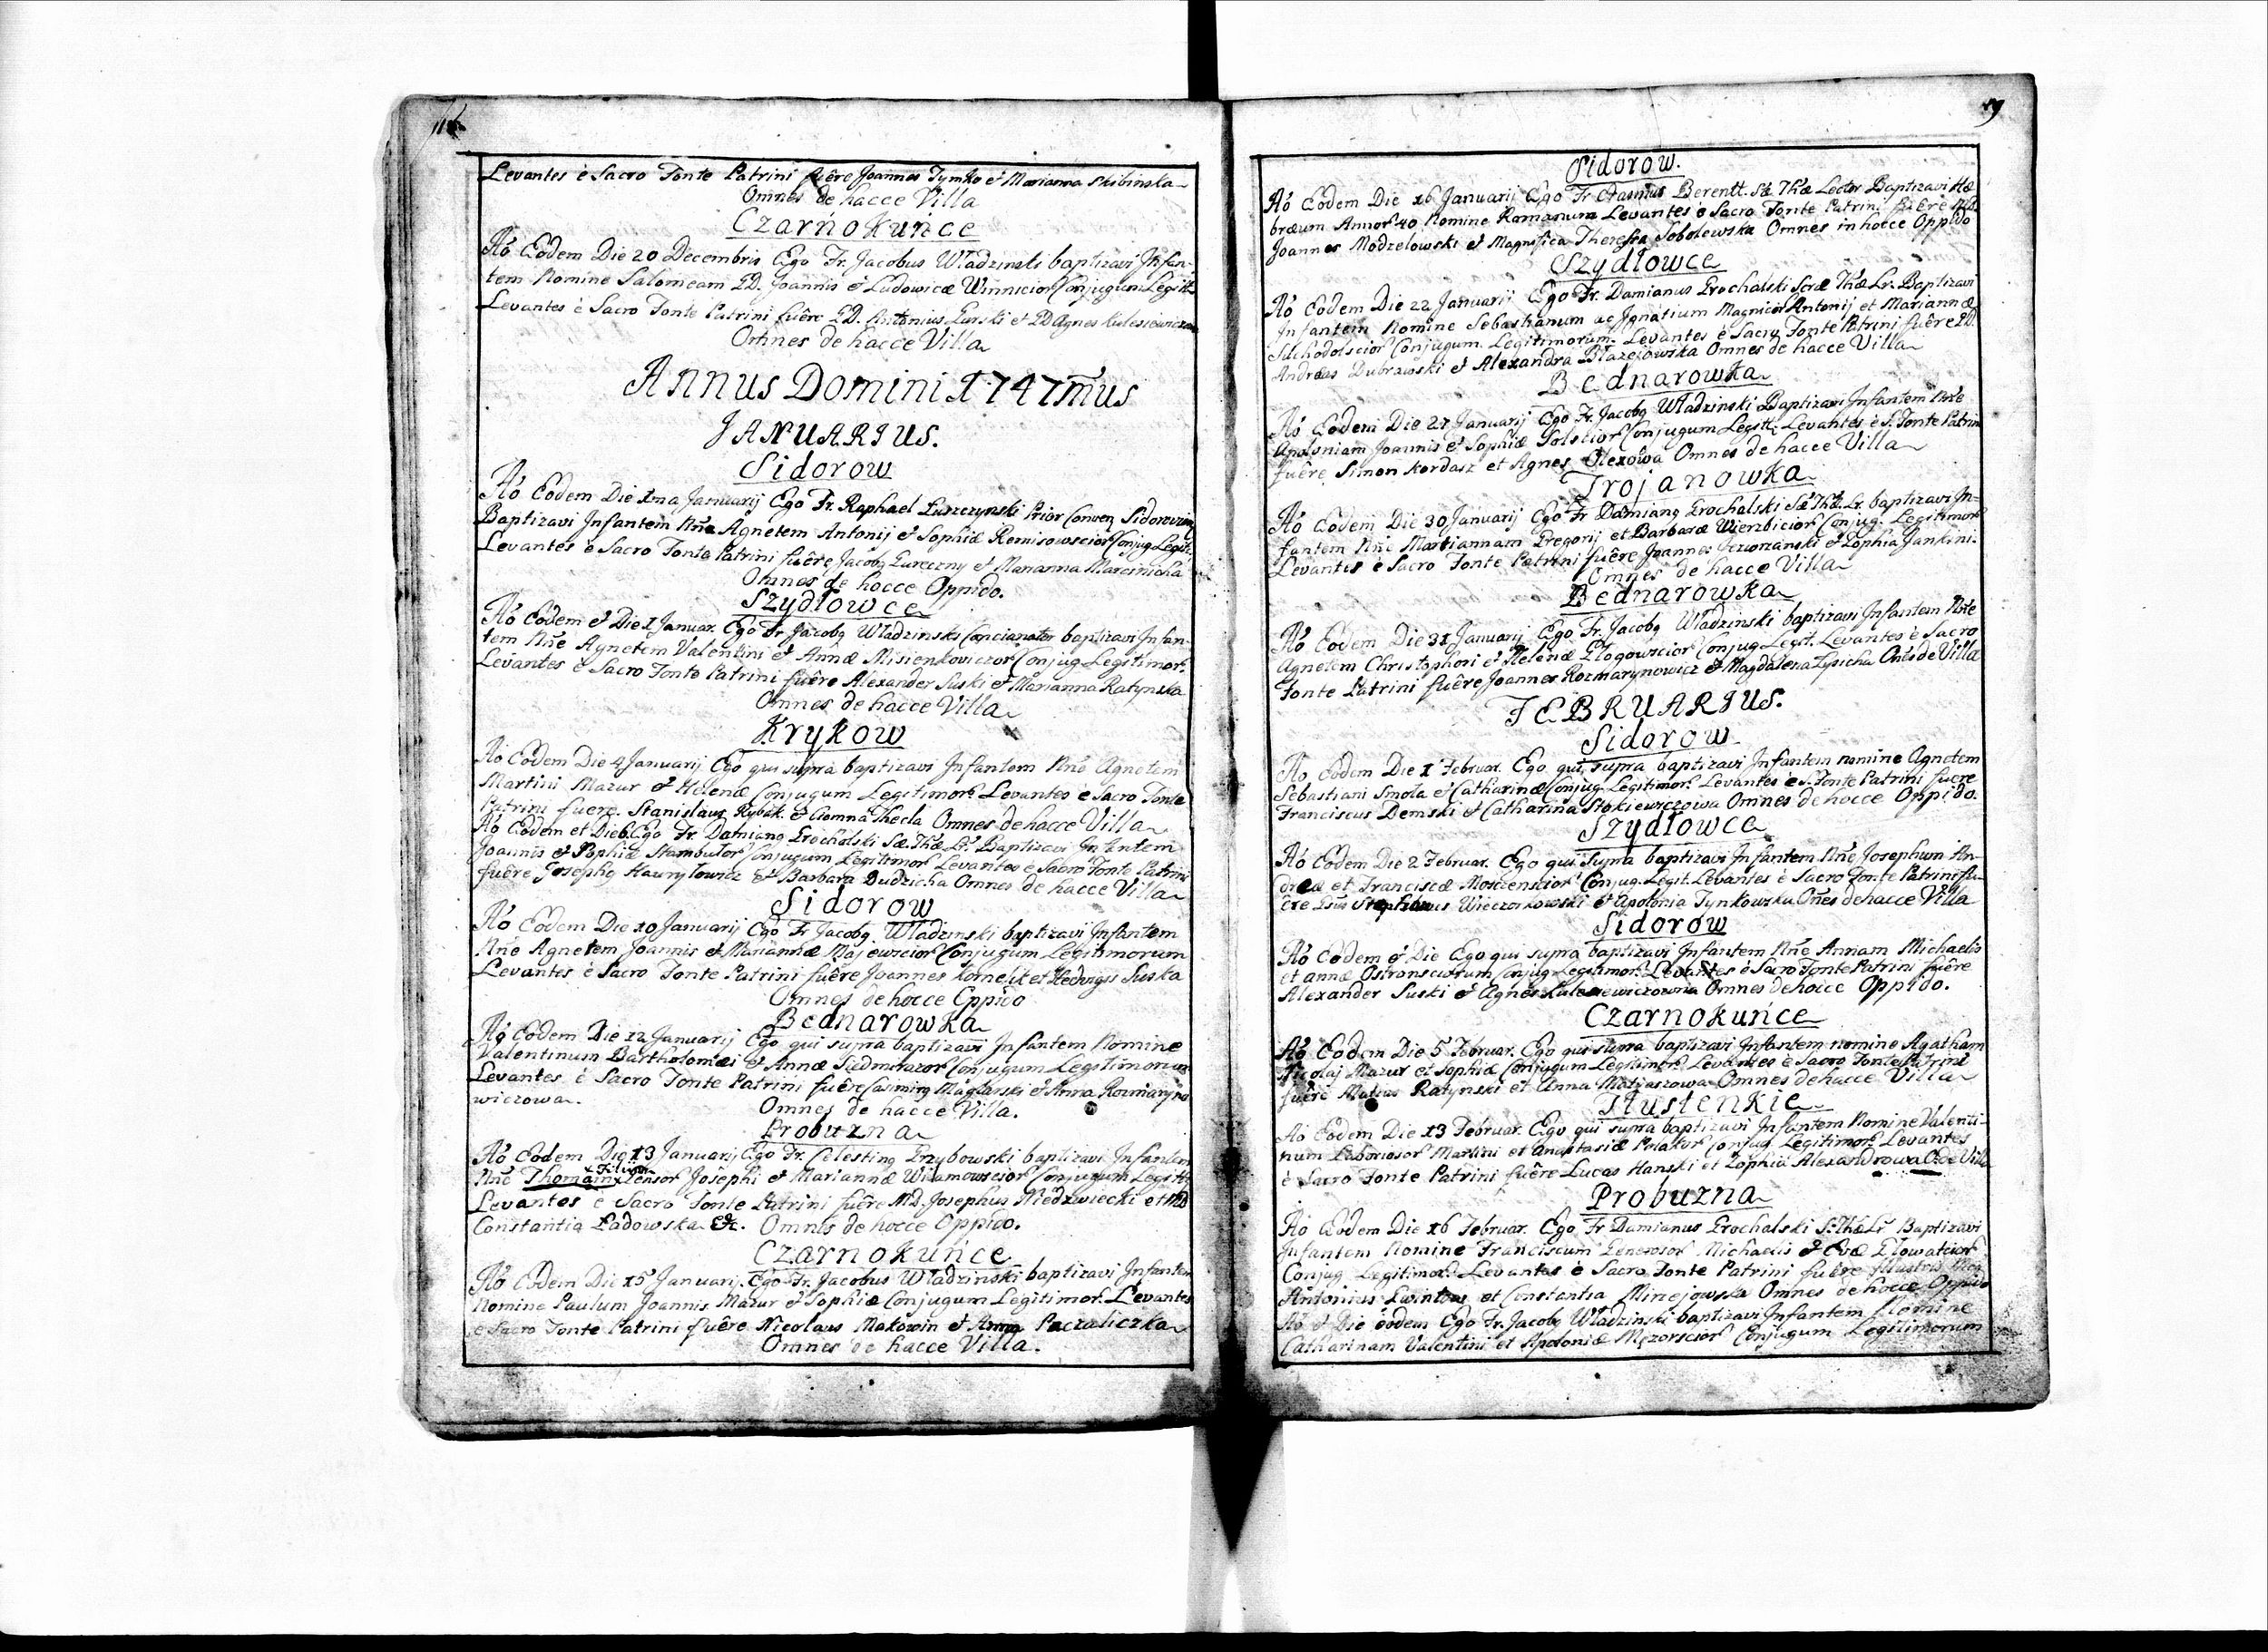 Levantes è Sacro Fonte Patrini fuêre Joannes Tymko et Marianna Skibinska
Omnes de hacce Villa
Czarnokuńce
Aó Eodem Die 20 Decembris Ego Fr. Jacobus Władzinski baptizavi Infan-
tem Nomine Salomeam GD. Joannis et Ludovicæ Conjugum Legitt.
Levantes è Sacro Fonte Patrini fuêre GD. Antonius Gurski et GD Agnes
Omnes de hacce Villa
Annus Domini 1747mus
JANUARIUS.
Sidorow
Aó Eodem Die 1ma Januarij Ego Fr. Raphael Prior Conven Sidorovien
Baptizavi Infantem Nñe Agnetem Antonij et Sophiæ Remisowscior Conjug. Legit.
Levantes è Sacro Fonte Patrini fuêre Jacobg Gureczny et Marianna Marcinicha
Omnes de hocce Oppido.
Szydłowce
Aó Eodem et Die 1 Januar. Ego Fr. Jacobg Władzinski Concianator baptizavi Infan-
tem Nñe Agnetem Valentini et Annæ Misienkowiczor Conjug Legitimor.
Levantes è Sacro Fonte Patrini fuêre Alexander Suski et Marianna Ratynska
Omnes de hacce Villa
Krykow
Aó Eodem Die 4 Januarij Ego qui supra baptizavi Infantem Nñe Agnetem
Martini Mazur et Helenæ Conjugum Legitimor Levantes è Sacro Fonte
Patrini fuere. Stanislaus Rybak. et Thecla Omnes de hacce Villa
Aó Eodem et Die 6. Ego Fr. Damiang Grochalski Sæ Thæ Lr. Baptizavi Infantem
Joannis et Sophiæ Stambulor Conjugum Legitimor Levantes è Sacro Fonte Patrini
fuêre Josephg Hawryłowicz et Barbara Dudzicha Omnes de hacce Villa
Sidorow
Aó Eodem Die 10 Januarij Ego Fr Jacobg Władzinski baptizavi Infantem
Nñe Agnetem Joannis et Mariannæ Majewscior Conjugum Legitimorum
Levantes è Sacro Fonte Patrini fuêre Joannes et Hedvigis Suska
Omnes de hocce Oppido
Bednarowka
Aó Eodem Die 12 Januarij Ego qui supra baptizavi Infantem Nomine
Valentinum Bartholomæi et Annæ Conjugum Legitimorum
Levantes è Sacro Fonte Patrini fuêre Casimirg et Anna Rozmaryno
wiczowa.
Omnes de hacce Villa.
Probuzna
Aó Eodem Die 13 Januarij Ego Fr. Celesting Grzybowski baptizavi Infantem
Filium
Nñe Thomam Josephi et Mariannæ Conjugum Legitt.
Levantes è Sacro Fonte Patrini fuêre MD. Josephus Niedzwiecki et MD
Constantia Ładowska &c. Omnes de hocce Oppido.
Czarnokuńce
Aó Eodem Die 15 Januarij. Ego Fr. Jacobus Władzinski baptizavi Infantem
Nomine Paulum Joannis Mazur et Sophiæ Conjugum Legitimor. Levantes
è Sacro Fonte Patrini fuêre Nicolaus Makowin et Anna
Omnes de hacce Villa.
19
Sidorow.
Aó Eodem Die 16 Januarij Ego Fr Erasmus Berentt. Sæ Thæ Lector Baptizavi Hæ
bræum Annor 40 Nomine Romanum Levantes è Sacro Fonte Patrini fuêre
Joannes Modzelowski et Magnifica Theressa Sobolewska Omnes in hocce Oppido
Szydłowce
Aó Eodem Die 22 Januarij Ego Fr. Damianus Grochalski Scræ Thæ Lr. Baptizavi
Infantem Nomine Sebastianum ac Ignatium Magnicor Antonij et Mariannæ
Suchodolscior Conjugum Legitimorum. Levantes è Sacro Fonte Patrini fuêre GD.
Andreas Dubrawski et Alexandra Błazejowska Omnes de hacce Villa
Bednarowka
Aó Eodem Die 27 Januarij Ego Fr. Jacobg Władzinski Baptizavi Infantem Nñe
Apoloniam Joannis et Sophiæ Conjugum Legitt. Levantes è S. Fonte Patrini
fuêre Simon Kordasz et Agnes Olexowa Omnes de hacce Villa
Trojanowka
Aó Eodem Die 30 Januarij Ego Fr Damiang Grochalski Sæ Thæ Lr. baptizavi In-
fantem Nñe Mariannam Gregorij et Barbaræ Wierzbicior Conjug. Legitimor
Levantes è Sacro Fonte Patrini fuêre Joannes et Zophia Jankini.
Omnes de hacce Villa
Bednarowka
Aó Eodem Die 31 Januarij Ego Fr. Jacobg Władzinski baptizavi Infantem Nñe
Agnetem Christophori et Helenæ Conjug Legit. Levantes è Sacro
Fonte Patrini fuêre Joannes Rozmarynowicz et Magdalena Łysicha Oñes de Villa
FEBRUARIUS.
Sidorow
Aó Eodem Die 1 Februar. Ego qui supra baptizavi Infantem nomine Agnetem
Sebastiani Smola et Catharinæ Conjug. Legitimor. Levantes è S. Fonte Patrini fuere
Franciscus Demski et Catharina Omnes de hocce Oppido.
Szydłowce
Aó Eodem Die 2 Februar. Ego qui supra baptizavi Infantem Nñe Josephum An-
dreæ et Franciscæ Conjug. Legit. Levantes è Sacro Fonte Patrini fu-
êre Stephanus Wieczorkowski et Apolonia Tynkowska Oñes de hacce Villa
Sidorow
Aó Eodem et Die Ego qui supra baptizavi Infantem Nñe Annam Michaelis
et annæ Conjug Legitimor. Levantes è Sacro Fonte Patrini fuêre
Alexander Suski et Agnes Omnes de hocce Oppido.
Czarnokuńce
Aó Eodem Die 5 Februar. Ego qui supra baptizavi Infantem nomine Agatham
Nicolaj Mazur et Sophiæ Conjugum Legitimor. Levantes è Sacro Fonte Patrini
fuêre Ratynski et Anna Matjaszowa Omnes de hacce Villa
Tłustenkie
Aó Eodem Die 13 Februar. Ego qui supra baptizavi Infantem Nomine Valenti-
num Laboriosor Martini et Anastasiæ Polakor Conjug. Legitimor. Levantes
è Sacro Fonte Patrini fuêre Lucas Hanski et Zophia Alexandrowa O. de Villa
Probuzna
Aó Eodem Die 16 Februar. Ego Fr Damianus Grochalski S. Thæ Lr. Baptizavi
Infantem Nomine Franciscum Generosor Michaelis et Evæ Głowackior
Conjug Legitimor. Levantes è Sacro Fonte Patrini fuêre Illustris Mag
Antonius et Constantia Omnes de hocce Oppido
Aó et Die eodem Ego Fr. Jacobg Władzinski baptizavi Infantem Nomine
Catharinam Valentini et Apoloniæ Conjugum Legitimorum